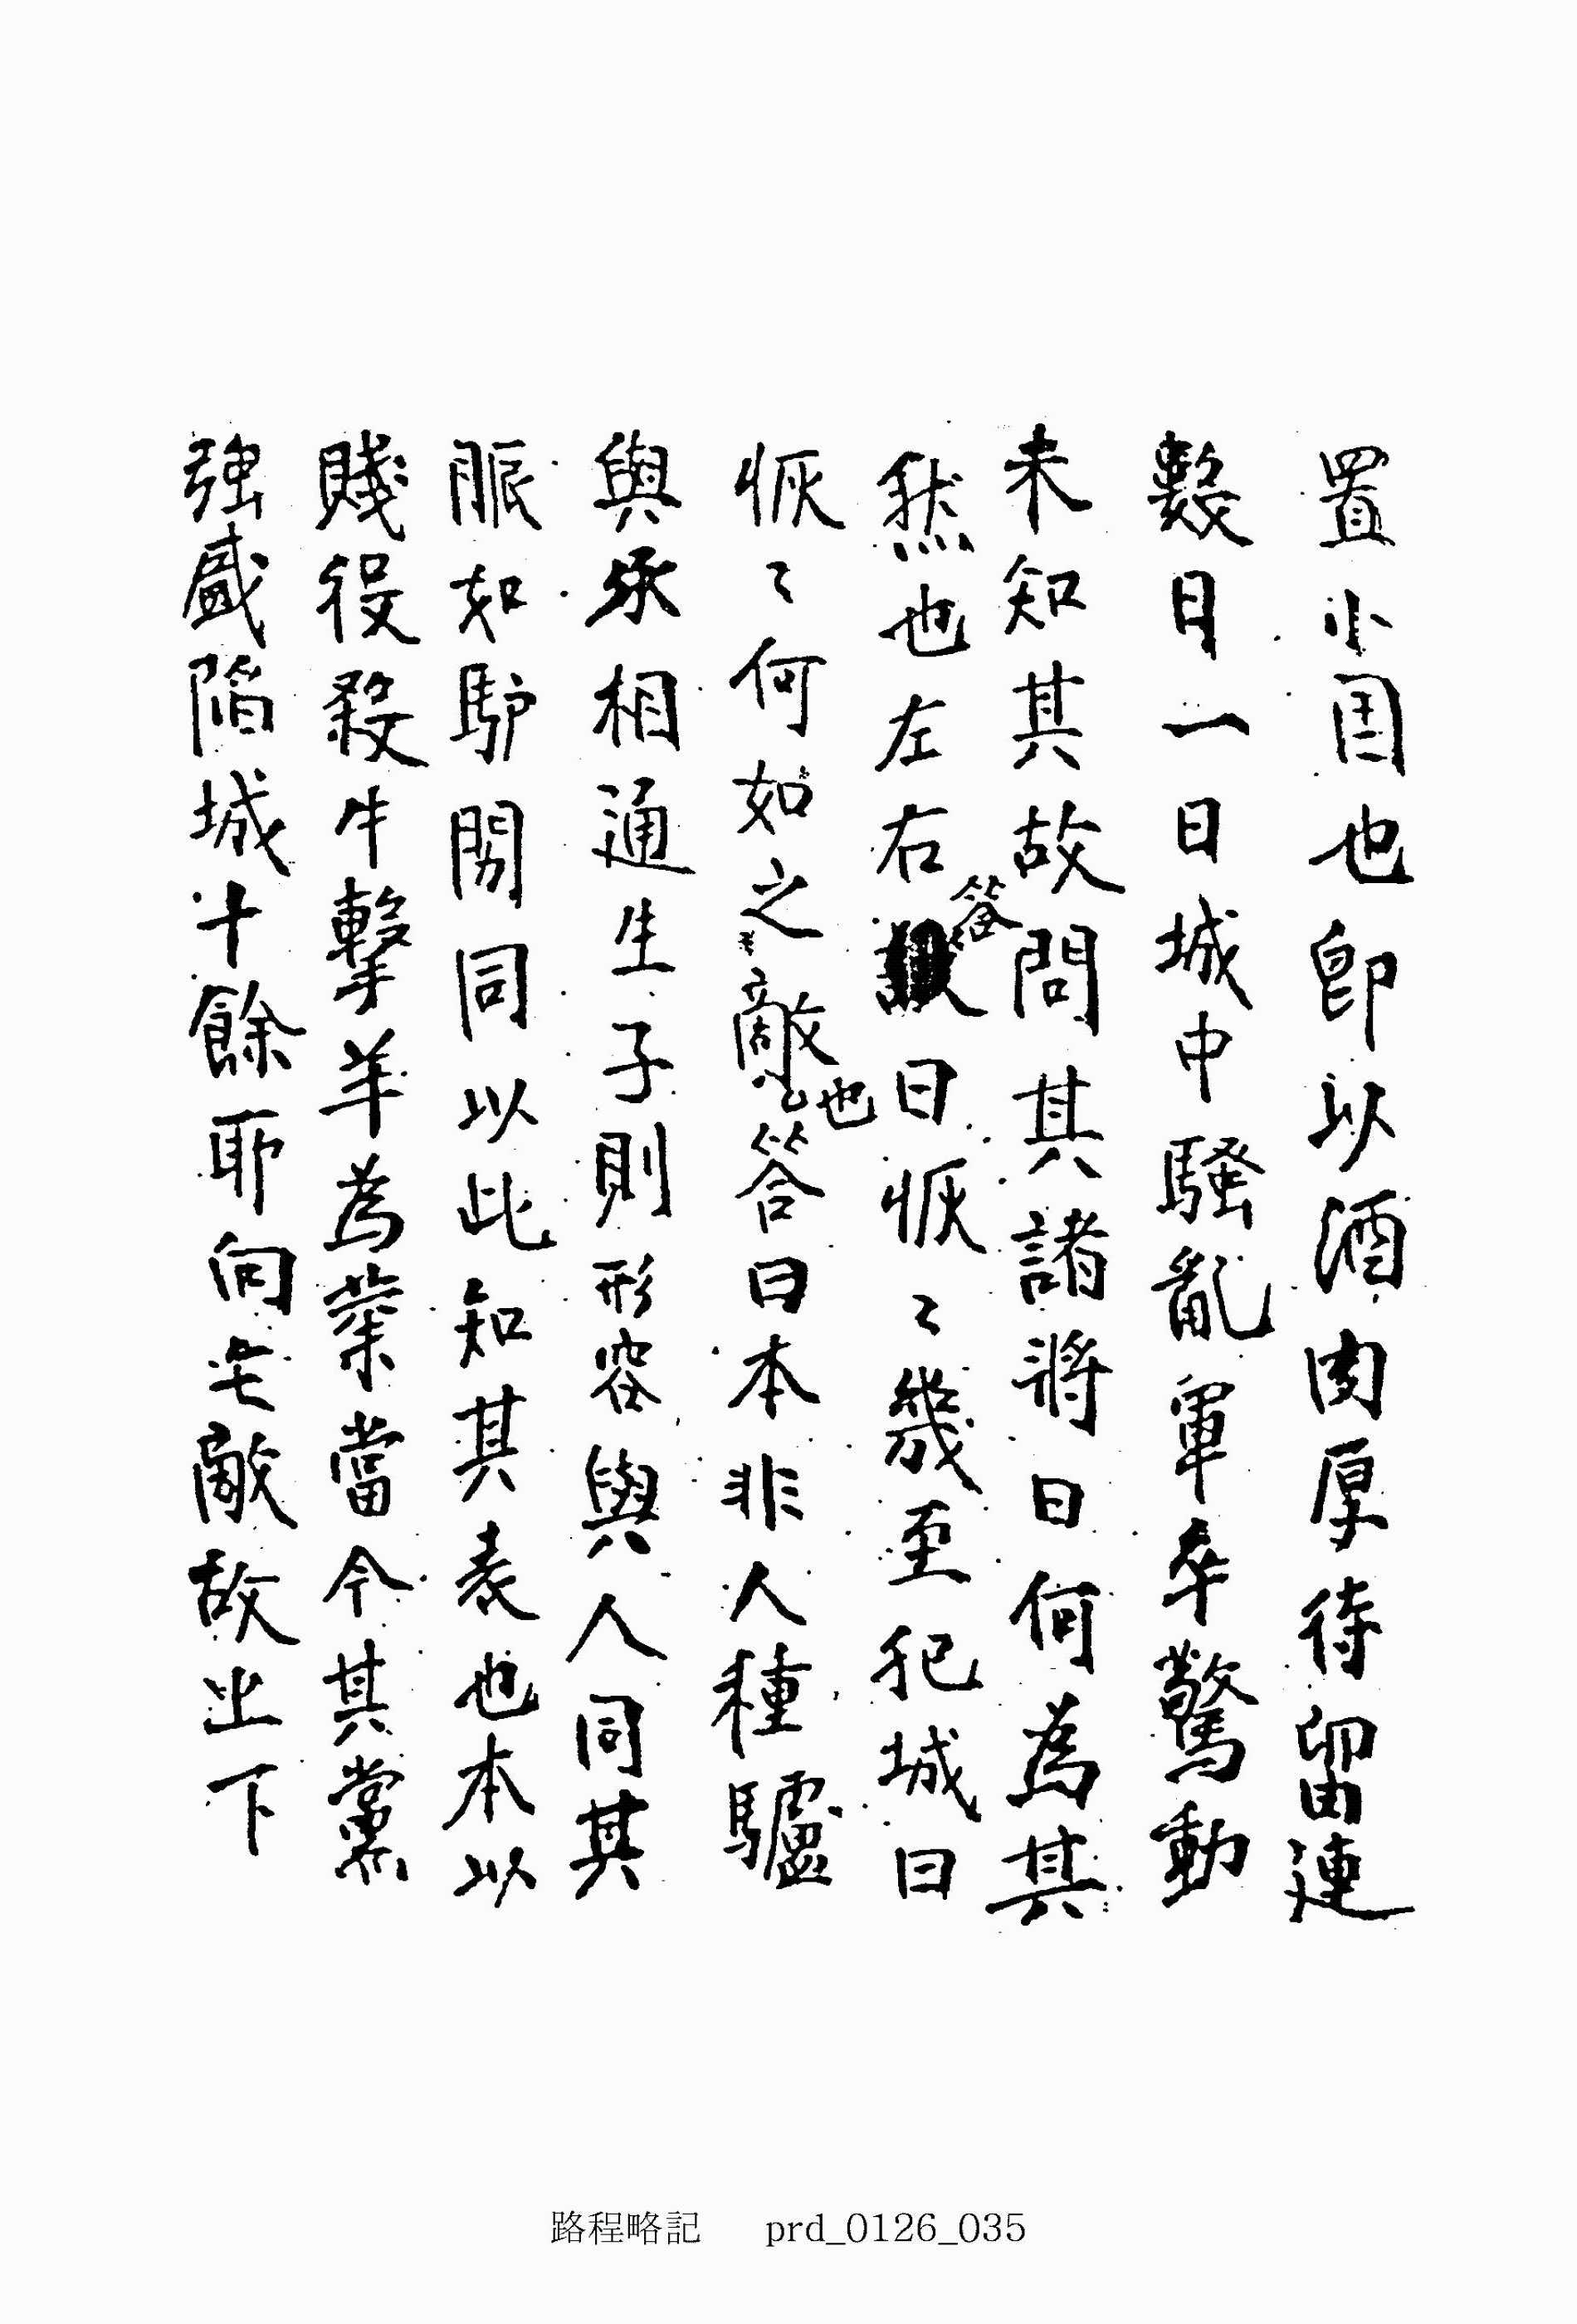 置小囯也卽以酒肉厚待留連
數日一日城中騷亂軍卒驚動
未知其故問其諸將曰何為其
然也左右答曰恢〻幾至犯城曰
恢〻何如之敵也答曰本非人種驢
與豕相通生子則形容與人同其
如馿同以此知其表也本以
賤役殺牛擊羊為業當今其黨
強盛陷城十餘耶向敵故出下
路程略記 prd_0126_035